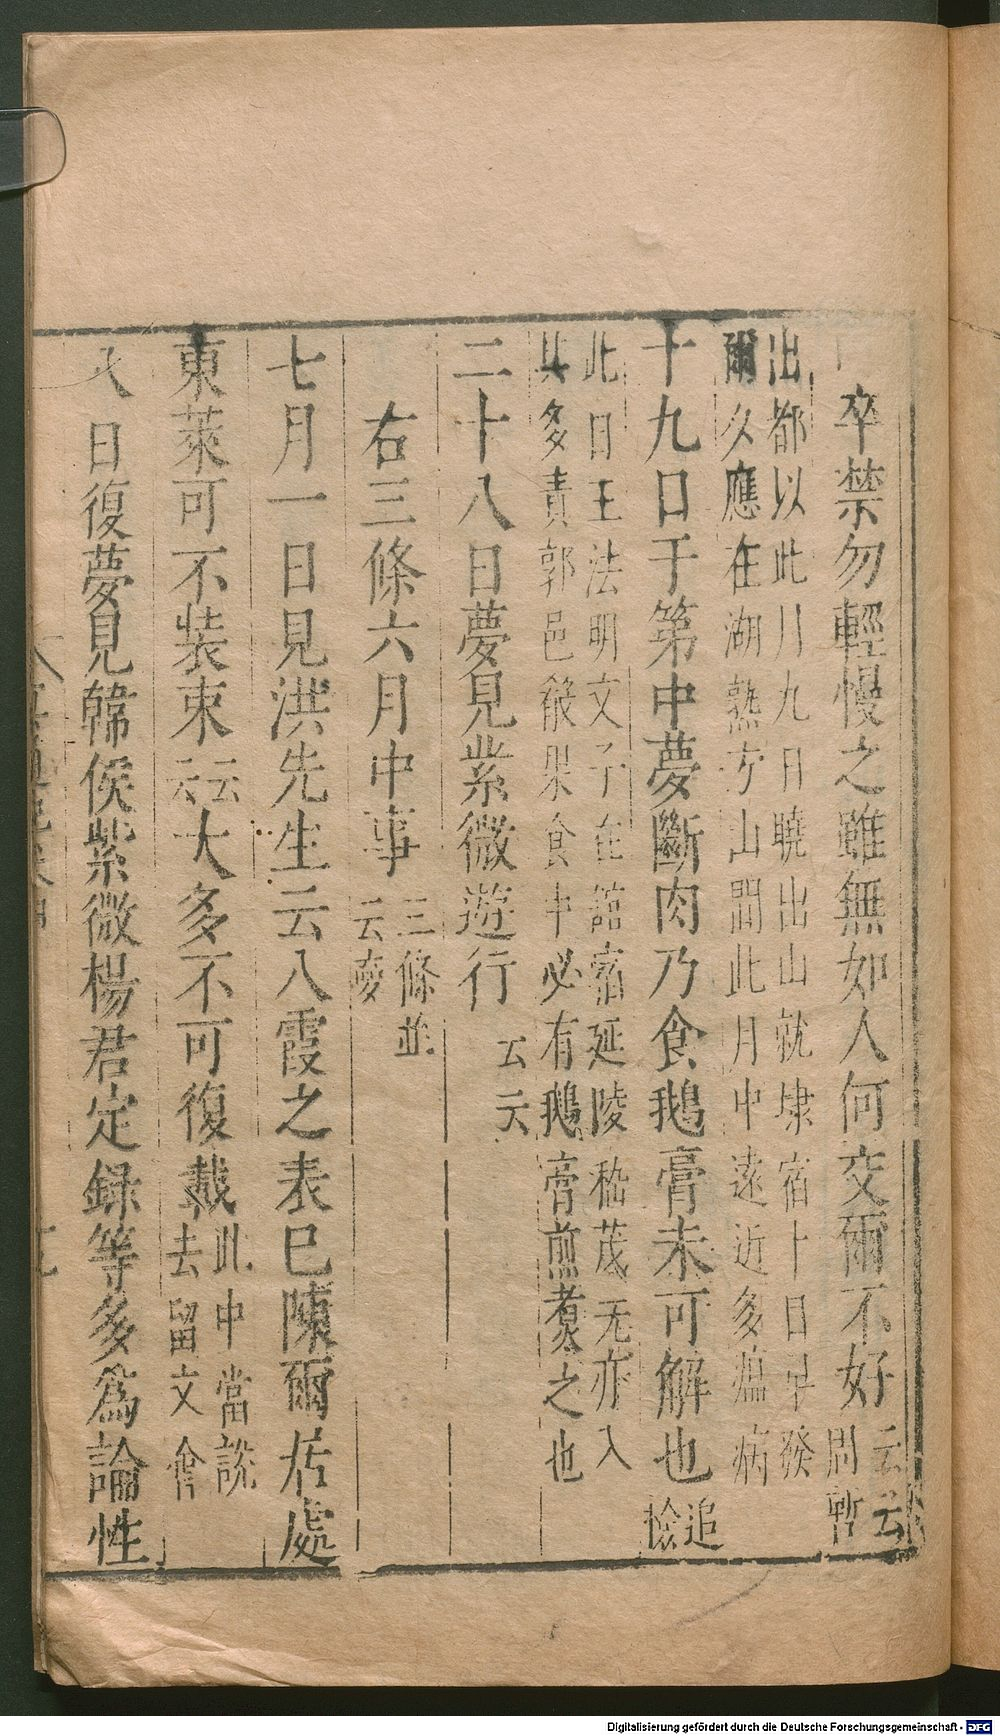 卒禁勿輕慢之雖無如人何交爾不好云云周暫
出都以此月九日曉出山就埭宿十日早發
爾久應在湖熟方山間此月中遠近多瘟病
十九日于第中夢斷肉乃食鵝膏未可解也追檢
此日王法明文子在館宿延陵嵇茂无亦入
其多責郭邑飯果食中必有鵝膏煎煑之也
二十八日夢見紫微遊行云云
右三條六月中事三條並云夌
七月一日見洪先生云八霞之表巳陳爾居處
東萊可不裝束云云大多不可復戴此中當說去留文會
日復夢見韓侯紫微楊君定録等多為論性
Digitalisierung gefördert durch die Deutsche Forschungsgemeinschaft - DFG